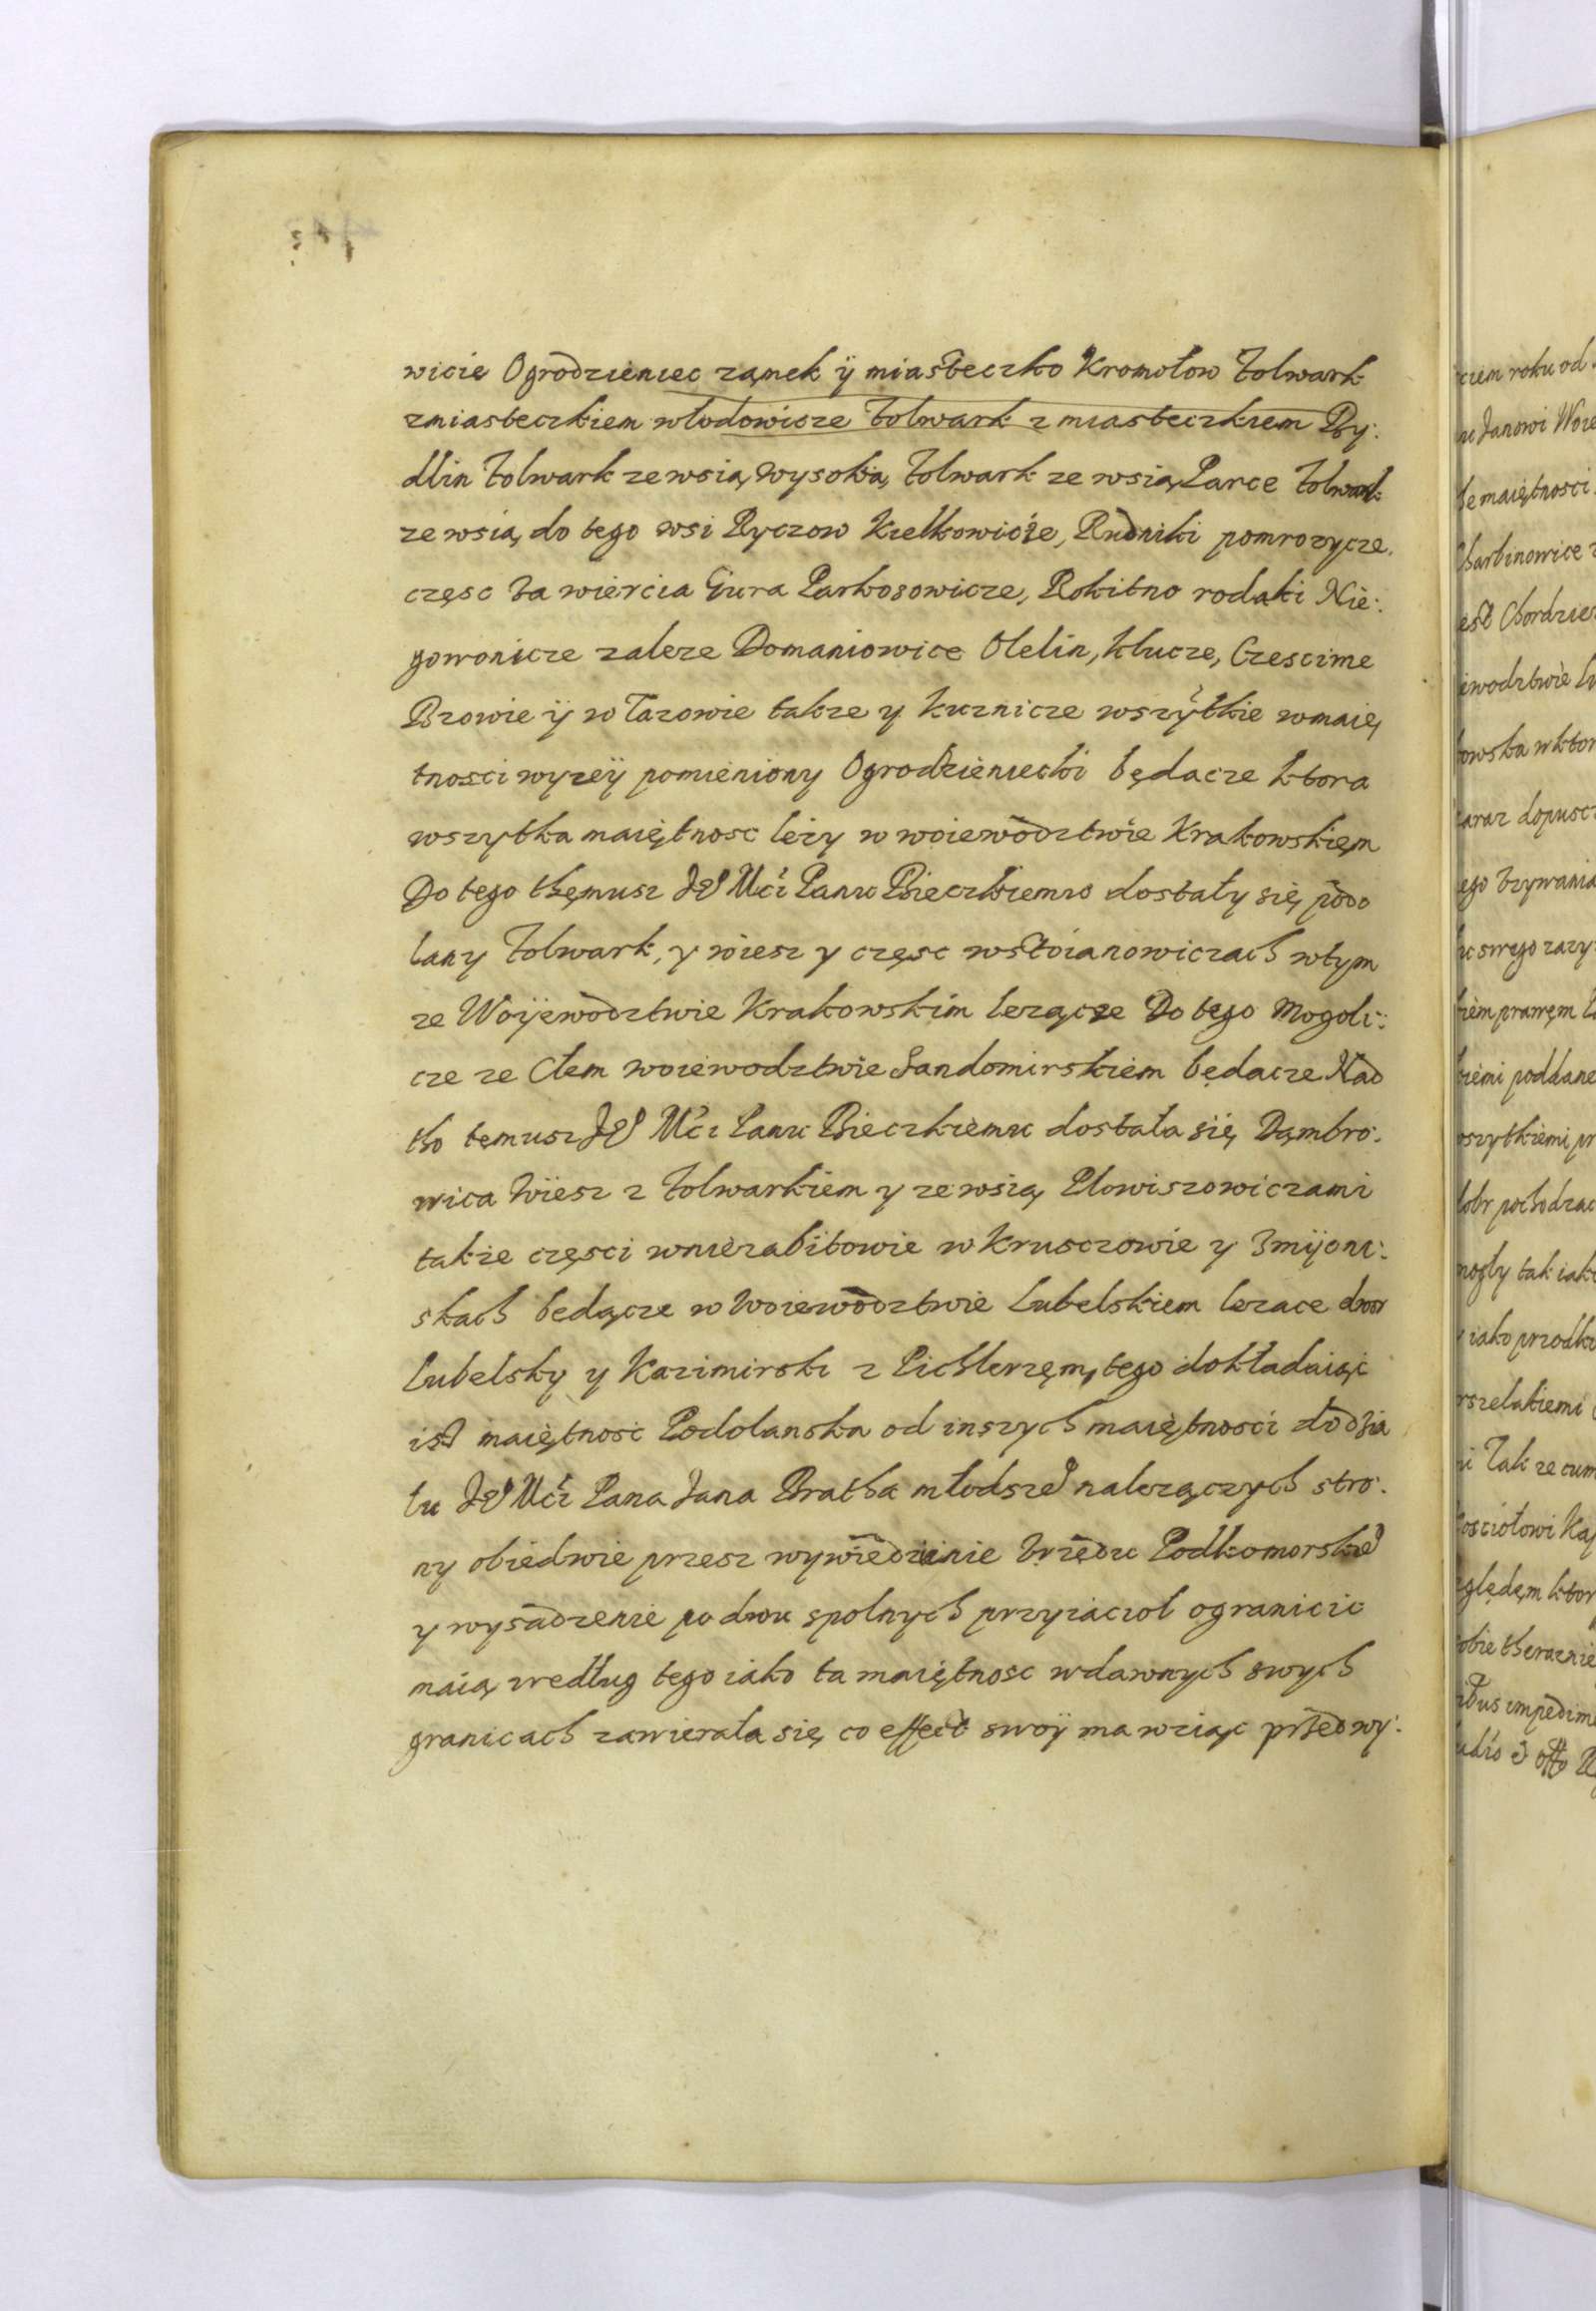 wicie Ogrodzieniec ząmek ÿ miasteczko Kromołow folwark
zmiasteczkiem włodowicze folwark z miasteczkiem By:
dlin folwark ze wsią, wysoka, folwark ze wsią, Parce folwark
ze wsią, do tego wsi Ryczow Kielkowicze, Rudniki pomrozycze.
częsc Zawiercia Gura Parkosowicze, Rokitno rodaki Nie:
gowonicze zaleze Domaniowice Olelin, klucze, Czescime
Bzowie ÿ w Łazowie takze y kuznicze wszÿtkie wmaię,
tnosci wyzeÿ pomieniony Ogrodzieniecki będacze ktora
wszytka maiętnosc leży w woiewodztwie Krakowskięm
Do tego thęmusz Je° Mći Panu Bieczkiemu dostały się, podo
lany folwark, y wiesz y częsc wstoianowiczach wtym
ze Woÿewodztwie Krakowskim lezącze Do tego Mogoli:
cze ze Cłem woiewodztwie Sandomirskiem będacze Nad
tho temusz Je° Mći Panu Bieczkiemu dostała się, Dąmbro:
wica wiesz z folwarkiem y ze wsią, Plowiszowiczami
takie częsci wnierabitowie w Krusczowie y Zmijoni:
skach bedącze w woiewodztwie Lubelskiem lezace dwor
Lubelsky y Kazimirski z Pichlerzęm, tego dokładaiąc
isz maiętnosc Podolanska od inszych maiętnosci do dzia
łu Je° Mći Pana Jana Bratha młodsze° nalezączych stro:
ny obiedwie przesz wywiedzienie Vrzędu Podkomorskie°
y wysadzenie po dwu spolnych przyiaciol ogranicic
maią, według tego iako ta maiętnosc wdawnych swych
granicach zawierała się, co effect swoÿ ma wziąc przed wy: